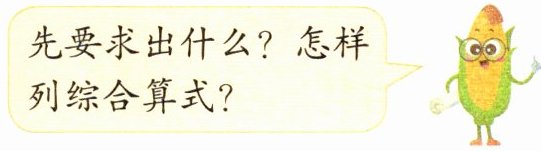 先要求出什么？怎样
列综合算式？